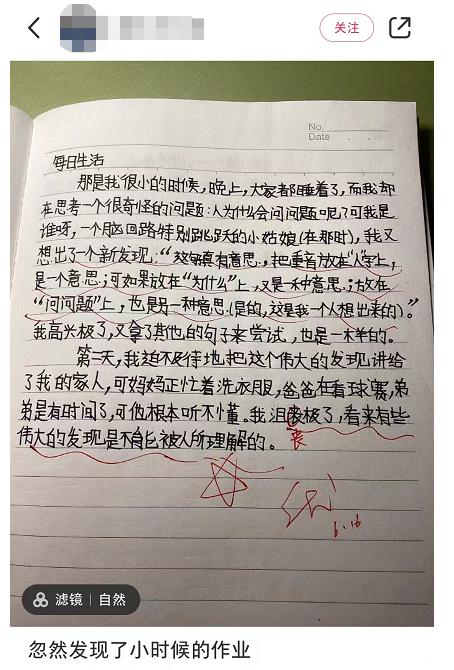 关注
No.
Date
每日生活
那是我很小的时候,晚上,大家都睡着了,而我却
在思考一个很奇怪的问题:人为什么会问问题呢?可我是
谁呀,一个脑回路特别跳跃的小姑娘(在那时),我又
想出了一个新发现:“这句真有意思,把重音放在“人”字上,
是一个意思;可如果放在“为什么”上,又是一种意思;放在
“问问题”上,也是另一种意思(是的,这是我一个人想出来的)。”
我高兴极了,又拿了其他的句子来尝试,也是一样的。
第二天,我迫不及待地把这个伟大的发现讲给
了我的家人,可妈妈正忙着洗衣服,爸爸在看球赛,弟
弟是有时间了,可他根本听不懂。我沮丧极了,看来有些
丧
伟大的发现是不能被人所理解的。
优
6.16
滤镜 | 自然
忽然发现了小时候的作业